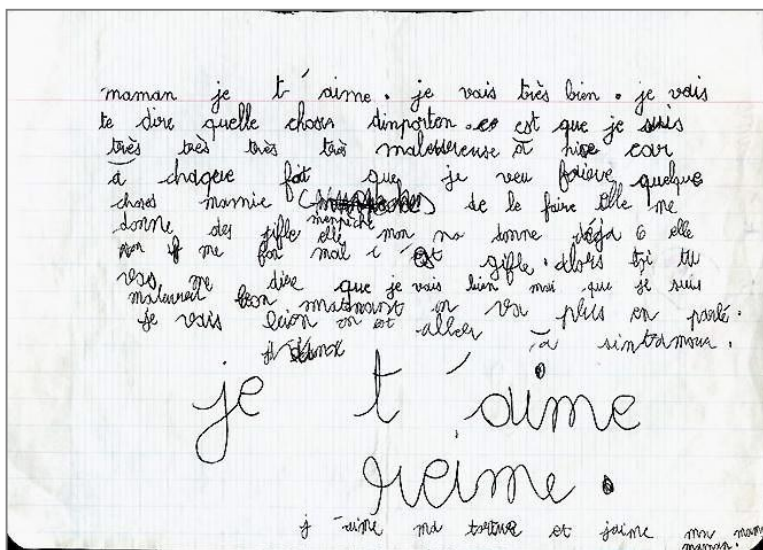 maman je t'aime. je vais très bien. je vais
te dire quelle choses dinporten. c est que je suis
très très très très malereuse à car
à chaqeue foit que je veu faiere quelque
choses mamie menpèche de le faire Elle me
donne des gifle elle mon na donne déja 6 elle
me fon mal c'est gifle. alors tu
vas me dire que je vais bien mai que je suis
malaureu bon matnant on va plus en parlé.
je vais bien on est aller à sintamour.
je t'aime
reime.
j aime ma tortue et j'aime ma maman.